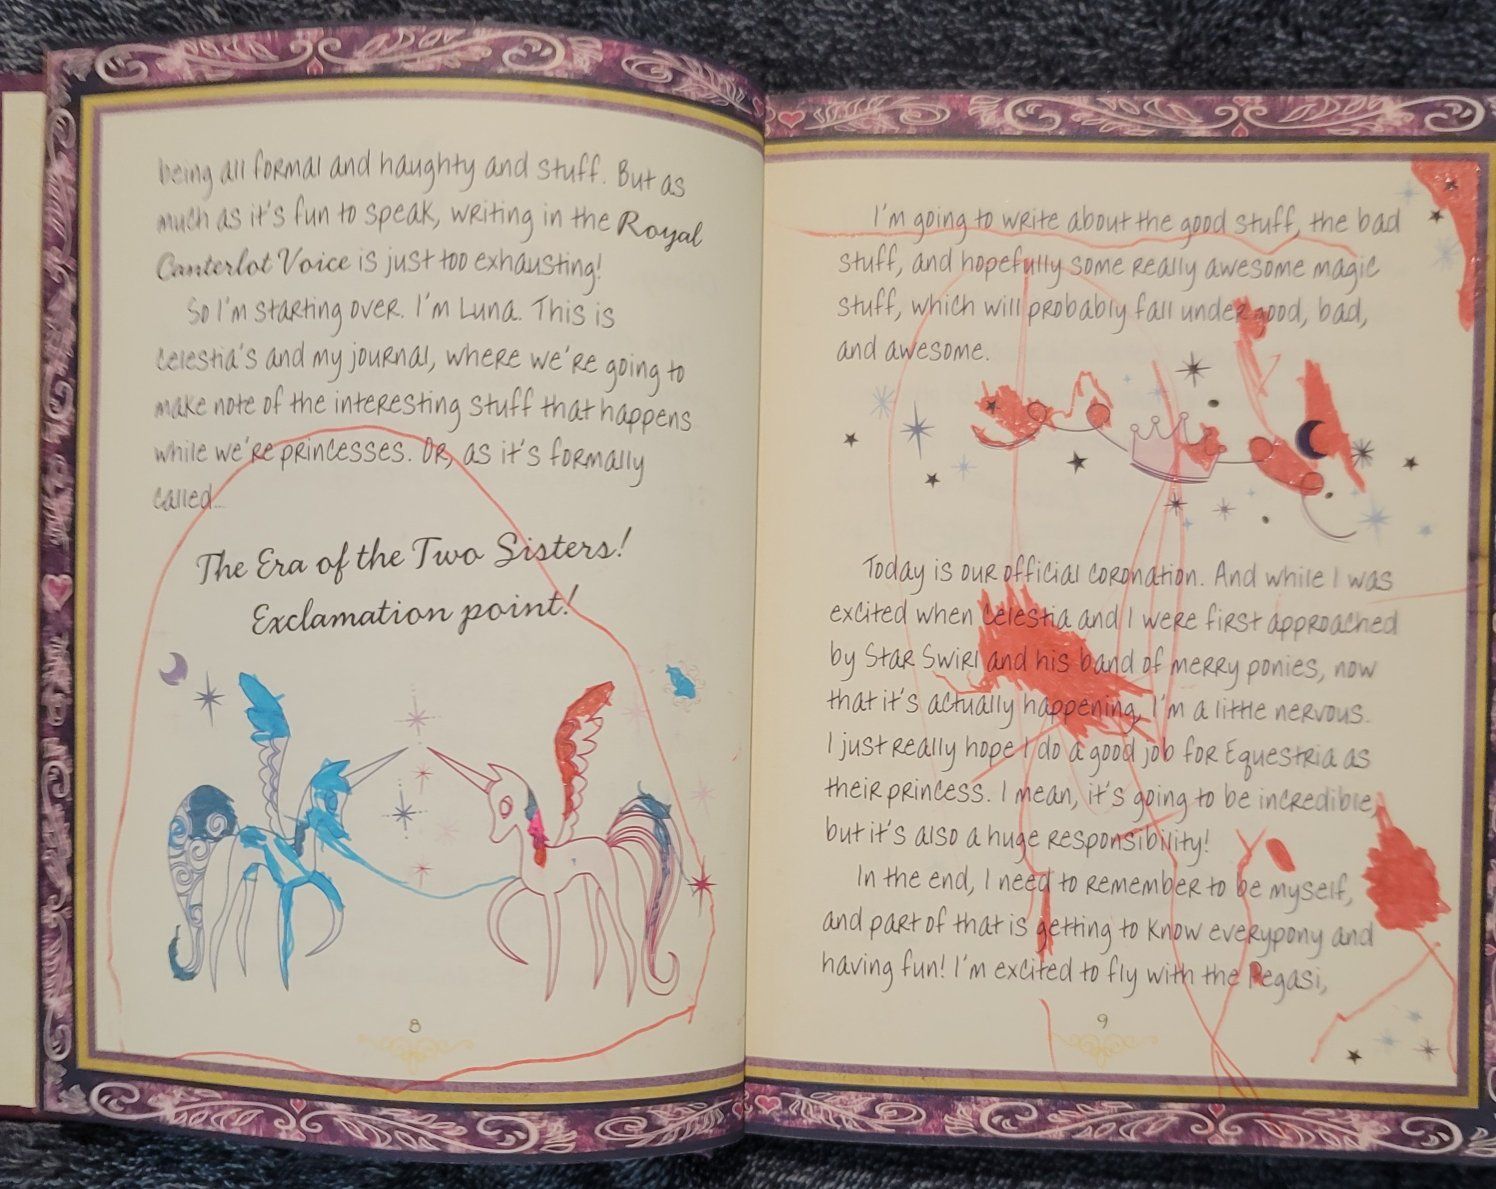 being all formal and haughty and stuff. But as
much as it's fun to speak, writing in the Royal
Canterlot Voice is just too exhausting!
So I'm starting over. I'm Luna. This is
Celestia's and my journal, where we're going to
make note of the interesting stuff that happens
while we're princesses. Or, as it's formally
called...
The Era of the Two Sisters!
Exclamation point!
8
I'm going to write about the good stuff, the bad
stuff, and hopefully some really awesome magic
stuff, which will probably fall under good, bad,
and awesome.
Today is our official coronation. And while I was
excited when Celestia and I were first approached
by Star Swirl and his band of merry ponies, now
that it's actually happening, I'm a little nervous.
I just really hope I do a good job for Equestria as
their princess. I mean, it's going to be incredible,
but it's also a huge responsibility!
In the end, I need to remember to be myself,
and part of that is getting to know everypony and
having fun! I'm excited to fly with the Pegasi,
9